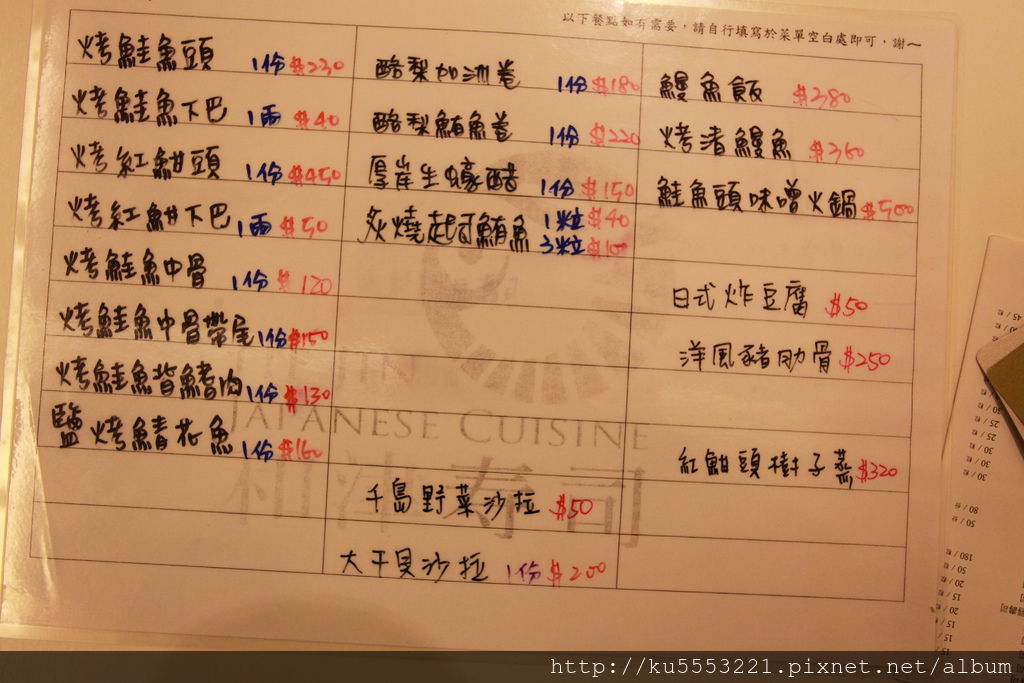 以下餐點如有需要，請自行填寫於菜單空白處即可，謝～
烤鮭魚頭 1份 $230
烤鮭魚下巴 1兩 $40
烤紅魽頭 1份 $450
烤紅魽下巴 1兩 $50
烤鮭魚中骨 1份 $120
烤鮭魚中骨帶尾 1份 $150
烤鮭魚背鰭肉 1份 $130
鹽烤鯖花魚 1份 $160
酪梨加洲卷 1份 $180
酪梨鮪魚卷 1份 $220
厚岸生蠔醋 1份 $150
炙燒起司鮪魚 1粒 $40
3粒 $100
千島野菜沙拉 $50
大干貝沙拉 1份 $200
鰻魚飯 $380
烤渚鰻魚 $360
鮭魚頭味噌火鍋 $500
日式炸豆腐 $50
洋風豬肋骨 $250
紅魽頭樹子蒸 $320
JAPANESE CUISINE
和津寿司
45 / 粒
30 / 粒
25 / 粒
25 / 粒
30 / 粒
30 / 粒
80 / 份
50 / 份
180 / 粒
50 / 粒
20 / 粒
15 / 粒
20 / 粒
15 / 粒
15 / 粒
http://ku5553221.pixnet.net/album